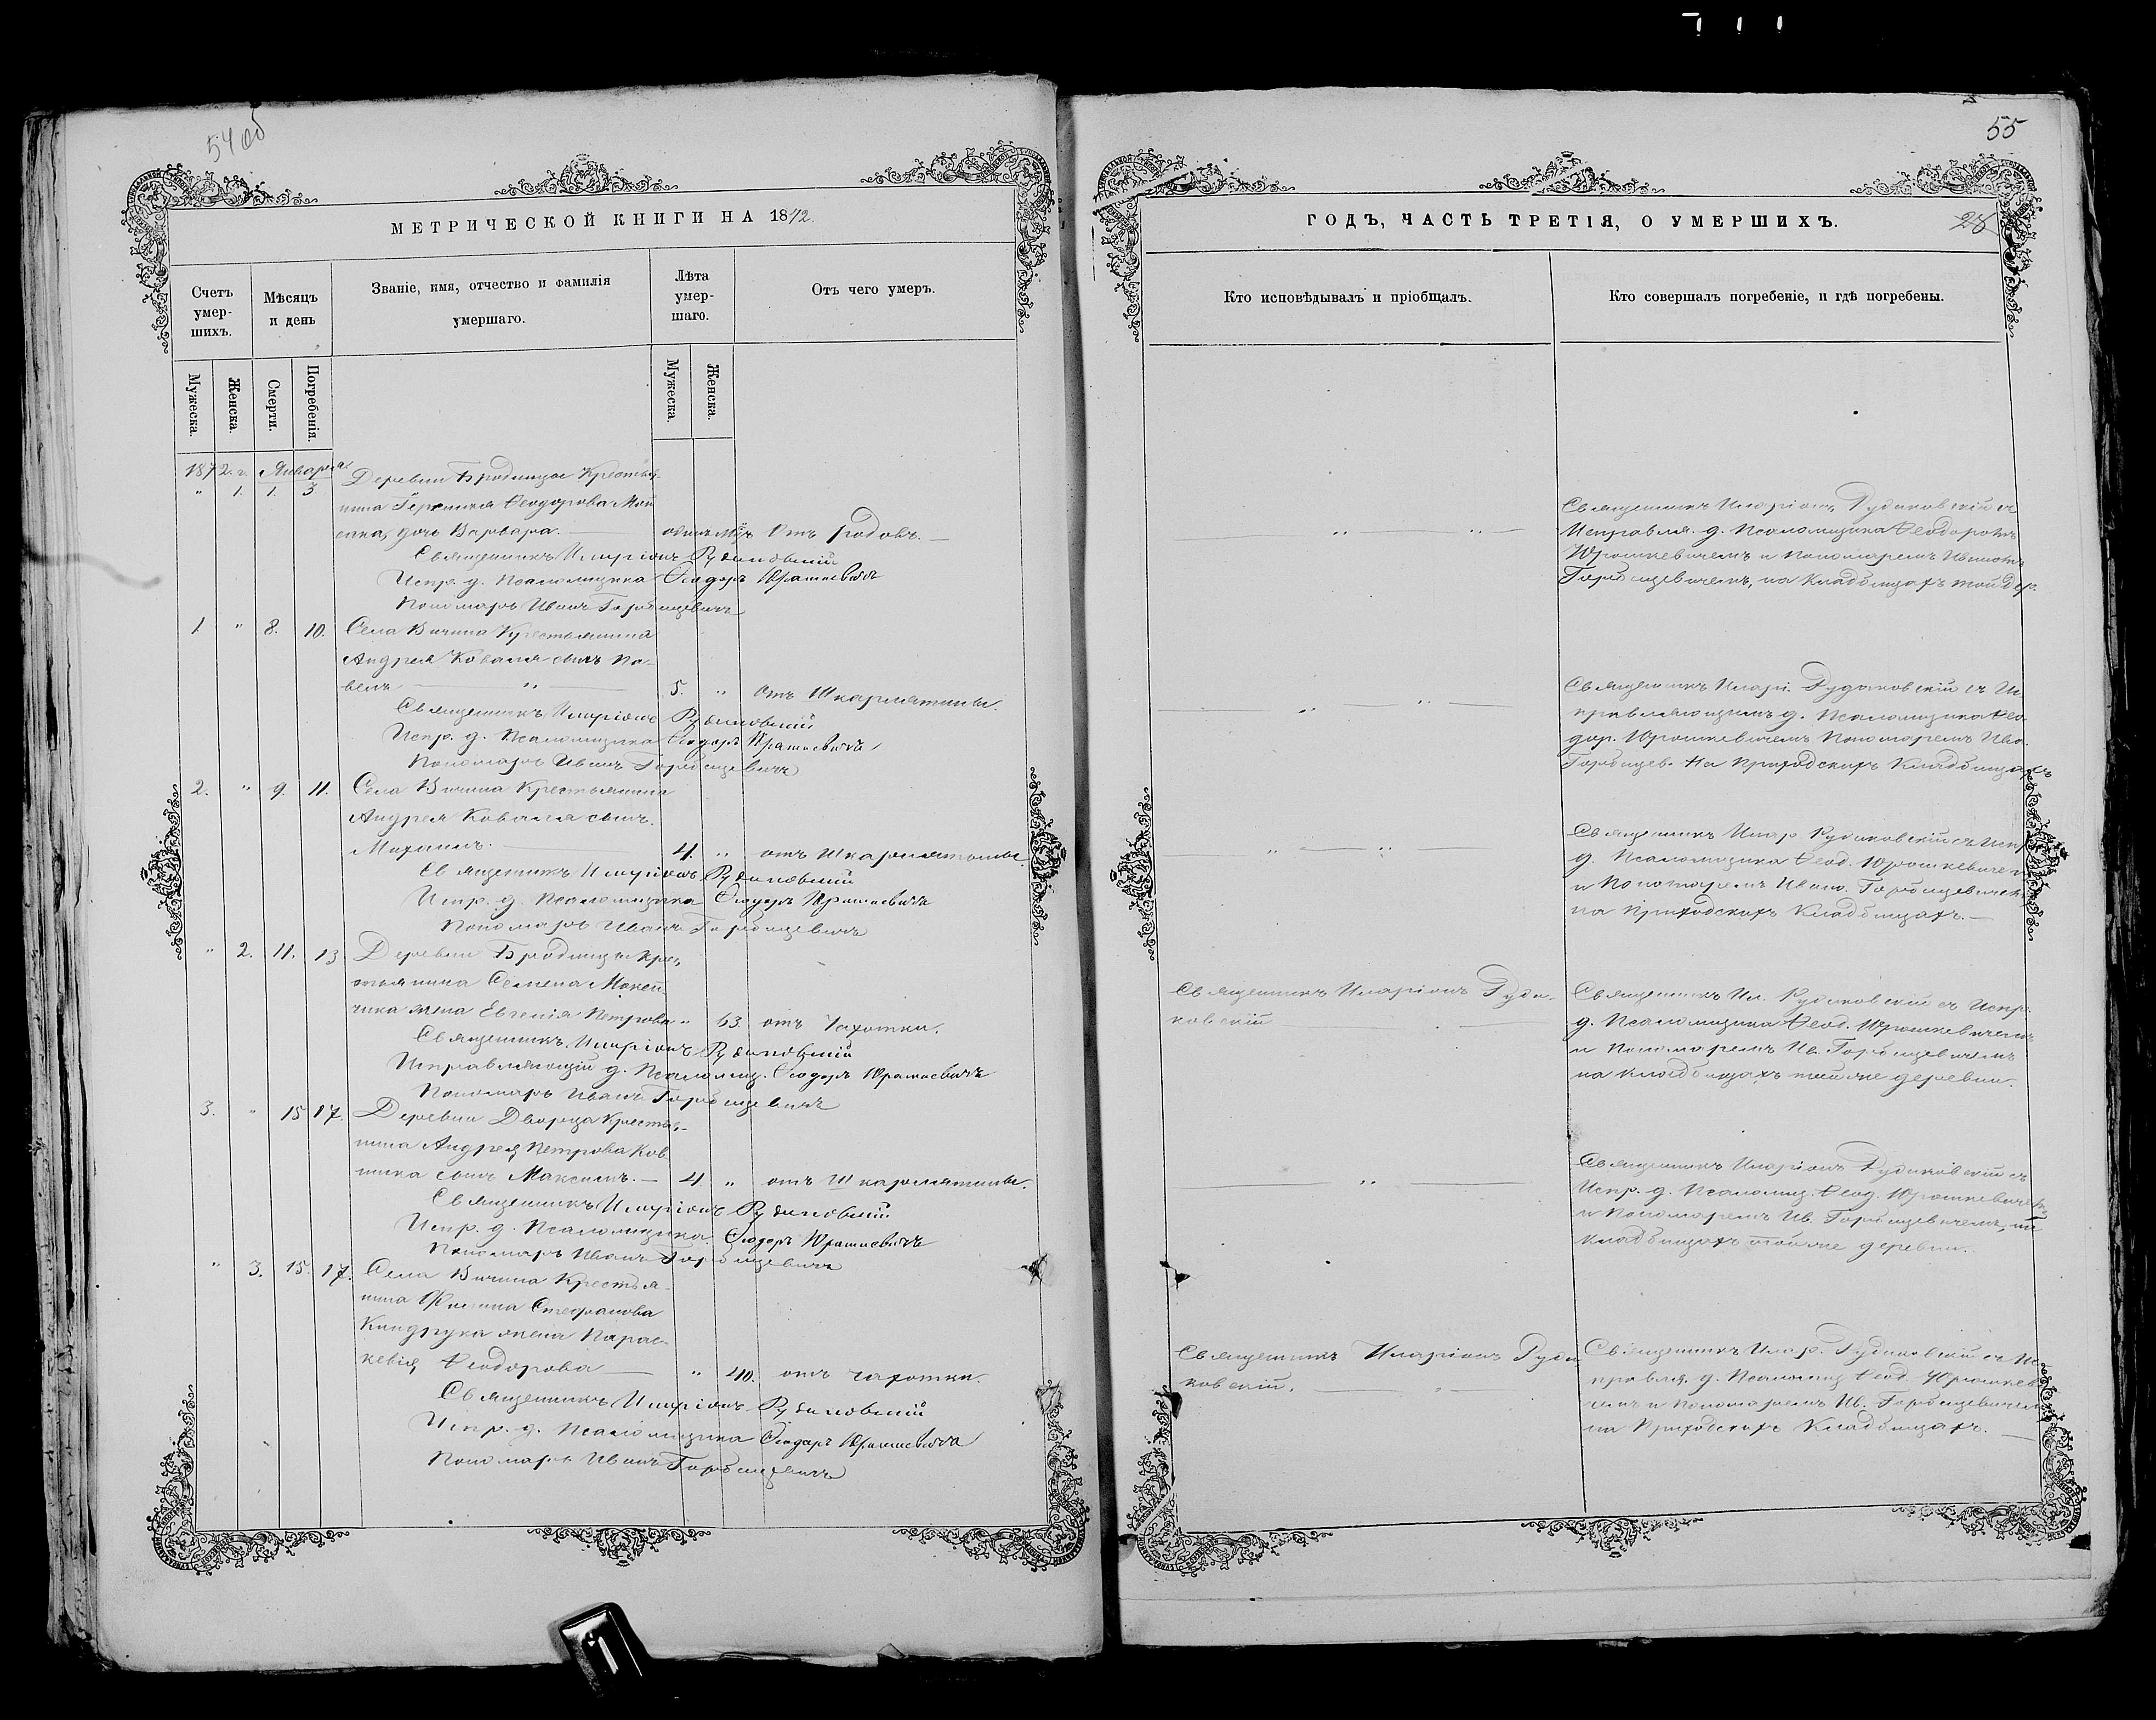 54 об
МЕТРИЧЕСКОЙ КНИГИ НА 1872.
Счетъ умер-шихъ.
Мѣсяцъ и день
Званіе, имя, отчество и фамилія умершаго.
Лѣта умер-шаго.
Отъ чего умеръ.
Мужеска.
Женска.
Смерти.
Погребенія.
Мужеска.
Женска.
1872. г. Января
" 1. 1. 3 Деревни Бродницы Крестья-
нина Феодорова Мой
дочь Варвара. Отъ родовъ.
Священникъ Иларіонъ Рудаковскій
Испр. д. Псаломщика Ѳеодоръ Юрашкевичъ
Пономарь Иванъ Горбацевичъ
1. " 8. 10. Села Вичина Крестьянина
Андрея Коваля сынъ Па-
велъ " 5. " отъ Шкарлятины.
Священникъ Иларіонъ Рудаковскій
Испр. д. Псаломщика Ѳеодоръ Юрашкевичъ
Пономарь Иванъ Горбацевичъ
2. " 9. 11. Села Вичина Крестьянина
Андрея Коваля сынъ
Михаилъ. 4. " отъ Шкарлятины.
Священникъ Иларіонъ Рудаковскій
Испр. д. Псаломщика Ѳеодоръ Юрашкевичъ
Пономарь Иванъ Горбацевичъ
" 2. 11. 13 Деревни Бродницы Кре-
стьянина Семена Мокей-
чика жена Евгенія Петрова " 63. отъ Чахотки.
Священникъ Иларіонъ Рудаковскій
Исправляющій д. Псаломщ. Ѳеодоръ Юрашкевичъ
Пономарь Иванъ Горбацевичъ
3. " 15 17. Деревни Дворца Крестья-
нина Андрея Петрова Ков
сынъ Максимъ. 4 " отъ Шкарлятины.
Священникъ Иларіонъ Рудаковскій
Испр. д. Псаломщика Ѳеодоръ Юрашкевичъ
Пономарь Иванъ Горбацевичъ
" 3. 15. 17. Села Вичина Крестья-
нина Стефанова
Киндрука жена Парас-
кевія Ѳеодорова " 40. отъ чахотки.
Священникъ Иларіонъ Рудаковскій
Испр. д. Псаломщика Ѳеодоръ Юрашкевичъ
Пономарь Иванъ Горбацевичъ
55
ГОДЪ, ЧАСТЬ ТРЕТІЯ, О УМЕРШИХЪ.
28
Кто исповѣдывалъ и пріобщалъ.
Кто совершалъ погребеніе, и гдѣ погребены.
Священникъ Иларіонъ Рудаковскій съ
Исправля. д. Псаломщика Ѳеодоромъ
Юрашкевичемъ и Пономаремъ Иваномъ
Горбацевичемъ, на Кладбищахъ той дер.
Священникъ Иларі. Рудаковскій съ Ис
правляющимъ д. Псаломщика Ѳео
дор. Юрашкевичемъ Пономаремъ Ива.
Горбацев. На Приходскихъ Кладбищахъ
Священникъ Илар Рудаковскій съ Испр
д. Псаломщика Ѳеод. Юрашкевичем
и Пономаремъ Ивано. Горбацевичем
на Приходскихъ Кладбищахъ.
Священникъ Иларіонъ Руда-
ковскій
Священникъ Ил. Рудаковскій съ Испр.
д. Псаломщика Ѳеод. Юрашкевичемъ
и Пономаремъ Ив. Горбацевичемъ
на кладбищахъ той же деревни.
Священникъ Иларіонъ Рудаковскій съ
Испр. д. Псаломщ. Ѳеод. Юрашкевичемъ
и Пономаремъ Ив. Горбацевичемъ, на
кладбищахъ той же деревни.
Священникъ Иларіонъ Руда
ковскій.
Священникъ Илар. Рудаковскій съ Ис
правля. д. Псаломщ Ѳеод. Юрашкев
и Пономаремъ Ив. Горбацевичем
на Приходскихъ Кладбищахъ.